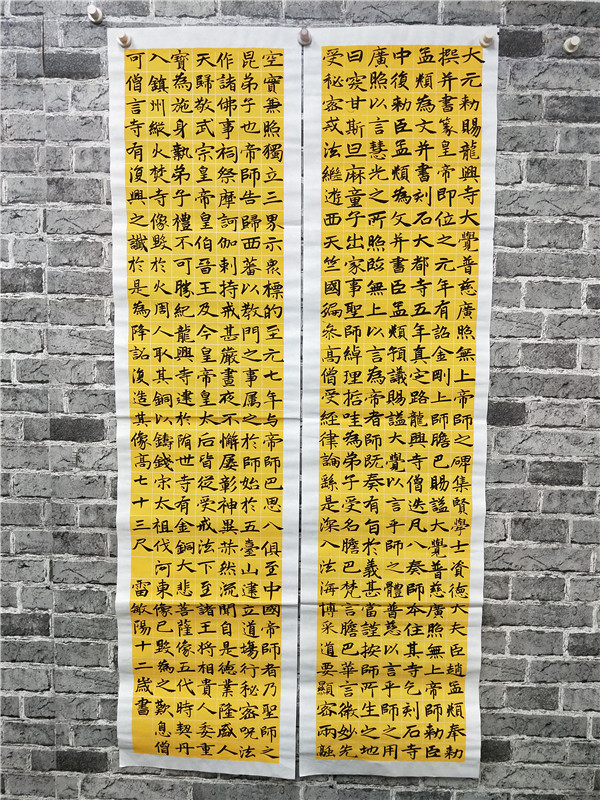 大元勅賜龍興寺大覺普慈廣照無上帝師之碑集賢學士資德大夫臣趙孟頫奉勅
撰并書篆皇帝即位之元年有詔金剛上師膽巴賜謚大覺普慈廣照無上帝師勅臣
孟頫為文并書刻石大都寺五年真定路龍興寺僧迭凡八奏師本住其寺乞刻石寺
中復勅臣孟頫為文并書臣孟頫預議賜謚大覺以言乎師之體普慈以言乎師之用
廣照以言慧光之所照臨無上以言為帝者師既奏有旨於義甚當謹按師所生之地
曰突甘斯旦麻童子出家事聖師綽理哲哇為弟子受名膽巴梵言膽巴華言微妙先
受秘密戒法繼遊西天竺國徧參高僧受經律論繇是深入法海博采道要顯密兩融
空實兼照獨立三界示眾標的至元七年与帝師巴思八俱至中國帝師者乃聖師之
昆弟子也帝師告歸西蕃以教門之事属之於師始於五臺山建立道場行秘密咒法
作諸佛事祠祭摩訶伽剌持戒甚嚴晝夜不懈屢彰神異赫然流聞自是德業隆盛人
天歸敬武宗皇帝皇伯晉王及今皇帝皇太后皆從受戒法下至諸王將相貴人委重
寶為施身執弟子禮不可勝紀龍興寺建於隋世寺有金銅大悲菩薩像五代時契丹
入鎮州縱火焚寺像毀於火周人取其銅以鑄錢宋太祖伐河東像已毀為之歎息僧
可僧言寺有復興之讖於是為降詔復造其像高七十三尺 雷敏陽十二歲書